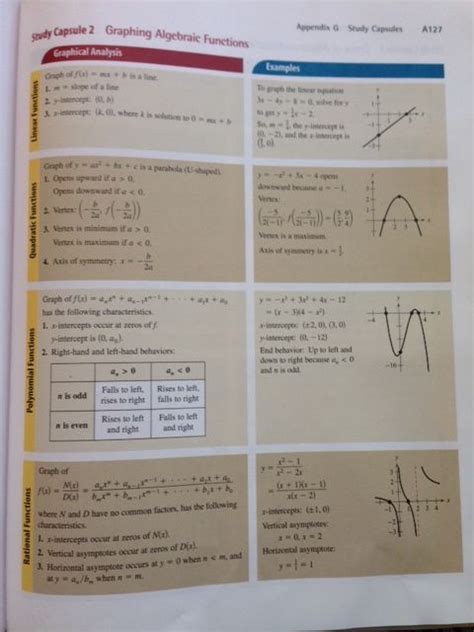 Appendix G Study Capsules A127
Study Capsule 2 Graphing Algebraic Functions
Graphical Analysis
Examples
Linear Functions
Graph of f(x) = mx + b is a line.
1. m = slope of a line
2. y-intercept: (0, b)
3. x-intercept: (k, 0), where k is solution to 0 = mx + b
To graph the linear equation
3x − 4y − 8 = 0, solve for y
to get y = 3/4 x − 2.
So, m = 3/4, the y-intercept is
(0, −2), and the x-intercept is
Quadratic Functions
Graph of y = ax² + bx + c is a parabola (U-shaped).
1. Opens upward if a > 0.
Opens downward if a < 0.
2. Vertex: (−b/2a, f(−b/2a))
3. Vertex is minimum if a > 0.
Vertex is maximum if a < 0.
4. Axis of symmetry: x = −b/2a
y = −x² + 5x − 4 opens
downward because a = −1.
Vertex:
(−5/2(−1), f(−5/2(−1))) = (5/2, 9/4)
Vertex is a maximum.
Axis of symmetry is x = 5/2.
Polynomial Functions
Graph of f(x) = aₙxⁿ + aₙ₋₁xⁿ⁻¹ + · · · + a₁x + a₀
has the following characteristics.
1. x-intercepts occur at zeros of f.
y-intercept is (0, a₀).
2. Right-hand and left-hand behaviors:
aₙ > 0 aₙ < 0
n is odd Falls to left, rises to right Rises to left, falls to right
n is even Rises to left and right Falls to left and right
y = −x³ + 3x² + 4x − 12
= (x − 3)(4 − x²)
x-intercepts: (±2, 0), (3, 0)
y-intercept: (0, −12)
End behavior: Up to left and
down to right because aₙ < 0
and n is odd.
-4
4
-16
Rational Functions
Graph of
f(x) = N(x)/D(x) = aₙxⁿ + aₙ₋₁xⁿ⁻¹ + · · · + a₁x + a₀ / bₘxᵐ + bₘ₋₁xᵐ⁻¹ + · · · + b₁x + b₀
where N and D have no common factors, has the following
characteristics.
1. x-intercepts occur at zeros of N(x).
2. Vertical asymptotes occur at zeros of D(x).
3. Horizontal asymptote occurs at y = 0 when n < m, and
at y = aₙ/bₘ when n = m.
y = x² − 1 / x² − 2x
= (x + 1)(x − 1) / x(x − 2)
x-intercepts: (±1, 0)
Vertical asymptotes:
x = 0, x = 2
Horizontal asymptote:
y = 1/1 = 1